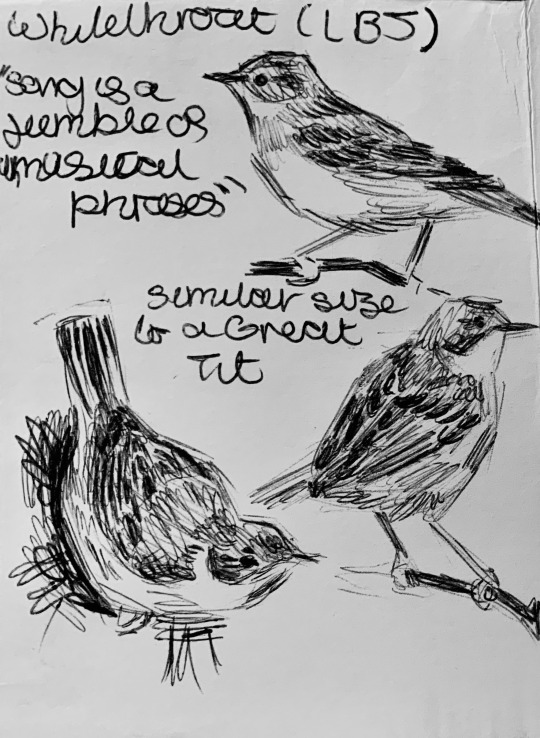 Whitethroat (LBJ)
"song is a
jumble of
musical
phrases"
similar size
to a Great
Tit